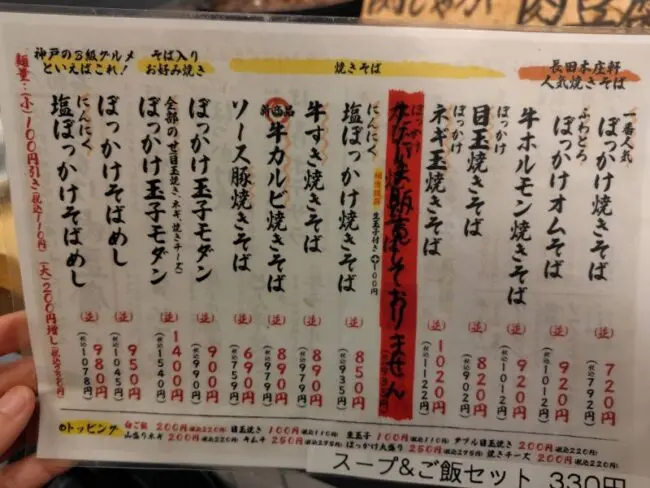 長田本庄軒
人気焼きそば
一番人気
ぼっかけ焼きそば
(並)
720円
(税込792円)
ふわとろ
ぼっかけオムそば
(並)
920円
(税込1012円)
ぼっかけ
牛ホルモン焼きそば
(並)
920円
(税込1012円)
焼きそば
ぼっかけ
目玉焼きそば
(並)
820円
(税込902円)
ぼっかけ
ネギ玉焼きそば
(並)
1020円
(税込1122円)
販売しておりません
にんにく
塩ぼっかけ焼きそば
生玉子付き+100円
(並)
850円
(税込935円)
牛すき焼きそば
(並)
890円
(税込979円)
新商品
牛カルビ焼きそば
(並)
890円
(税込979円)
ソース豚焼きそば
(並)
690円
(税込759円)
そば入り
お好み焼き
ぼっかけ玉子モダン
(並)
900円
(税込990円)
全部のせ(目玉焼き・ネギ・焼きチーズ)
ぼっかけ玉子モダン
(並)
1400円
(税込1540円)
神戸のB級グルメ
といえばこれ!
ぼっかけそばめし
(並)
950円
(税込1045円)
にんにく
塩ぼっかけそばめし
(並)
980円
(税込1078円)
麺量:(小)100円引き(税込110円) (大)200円増し
◎トッピング
白ご飯 200円(税込220円) 目玉焼き 100円(税込110円) 生玉子 100円(税込110円) ダブル目玉焼き 200円(税込220円)
山盛りネギ 200円(税込220円) キムチ 250円(税込275円) ぼっかけ大盛り 250円(税込275円) 焼きチーズ 200円(税込220円)
スープ&ご飯セット 330円